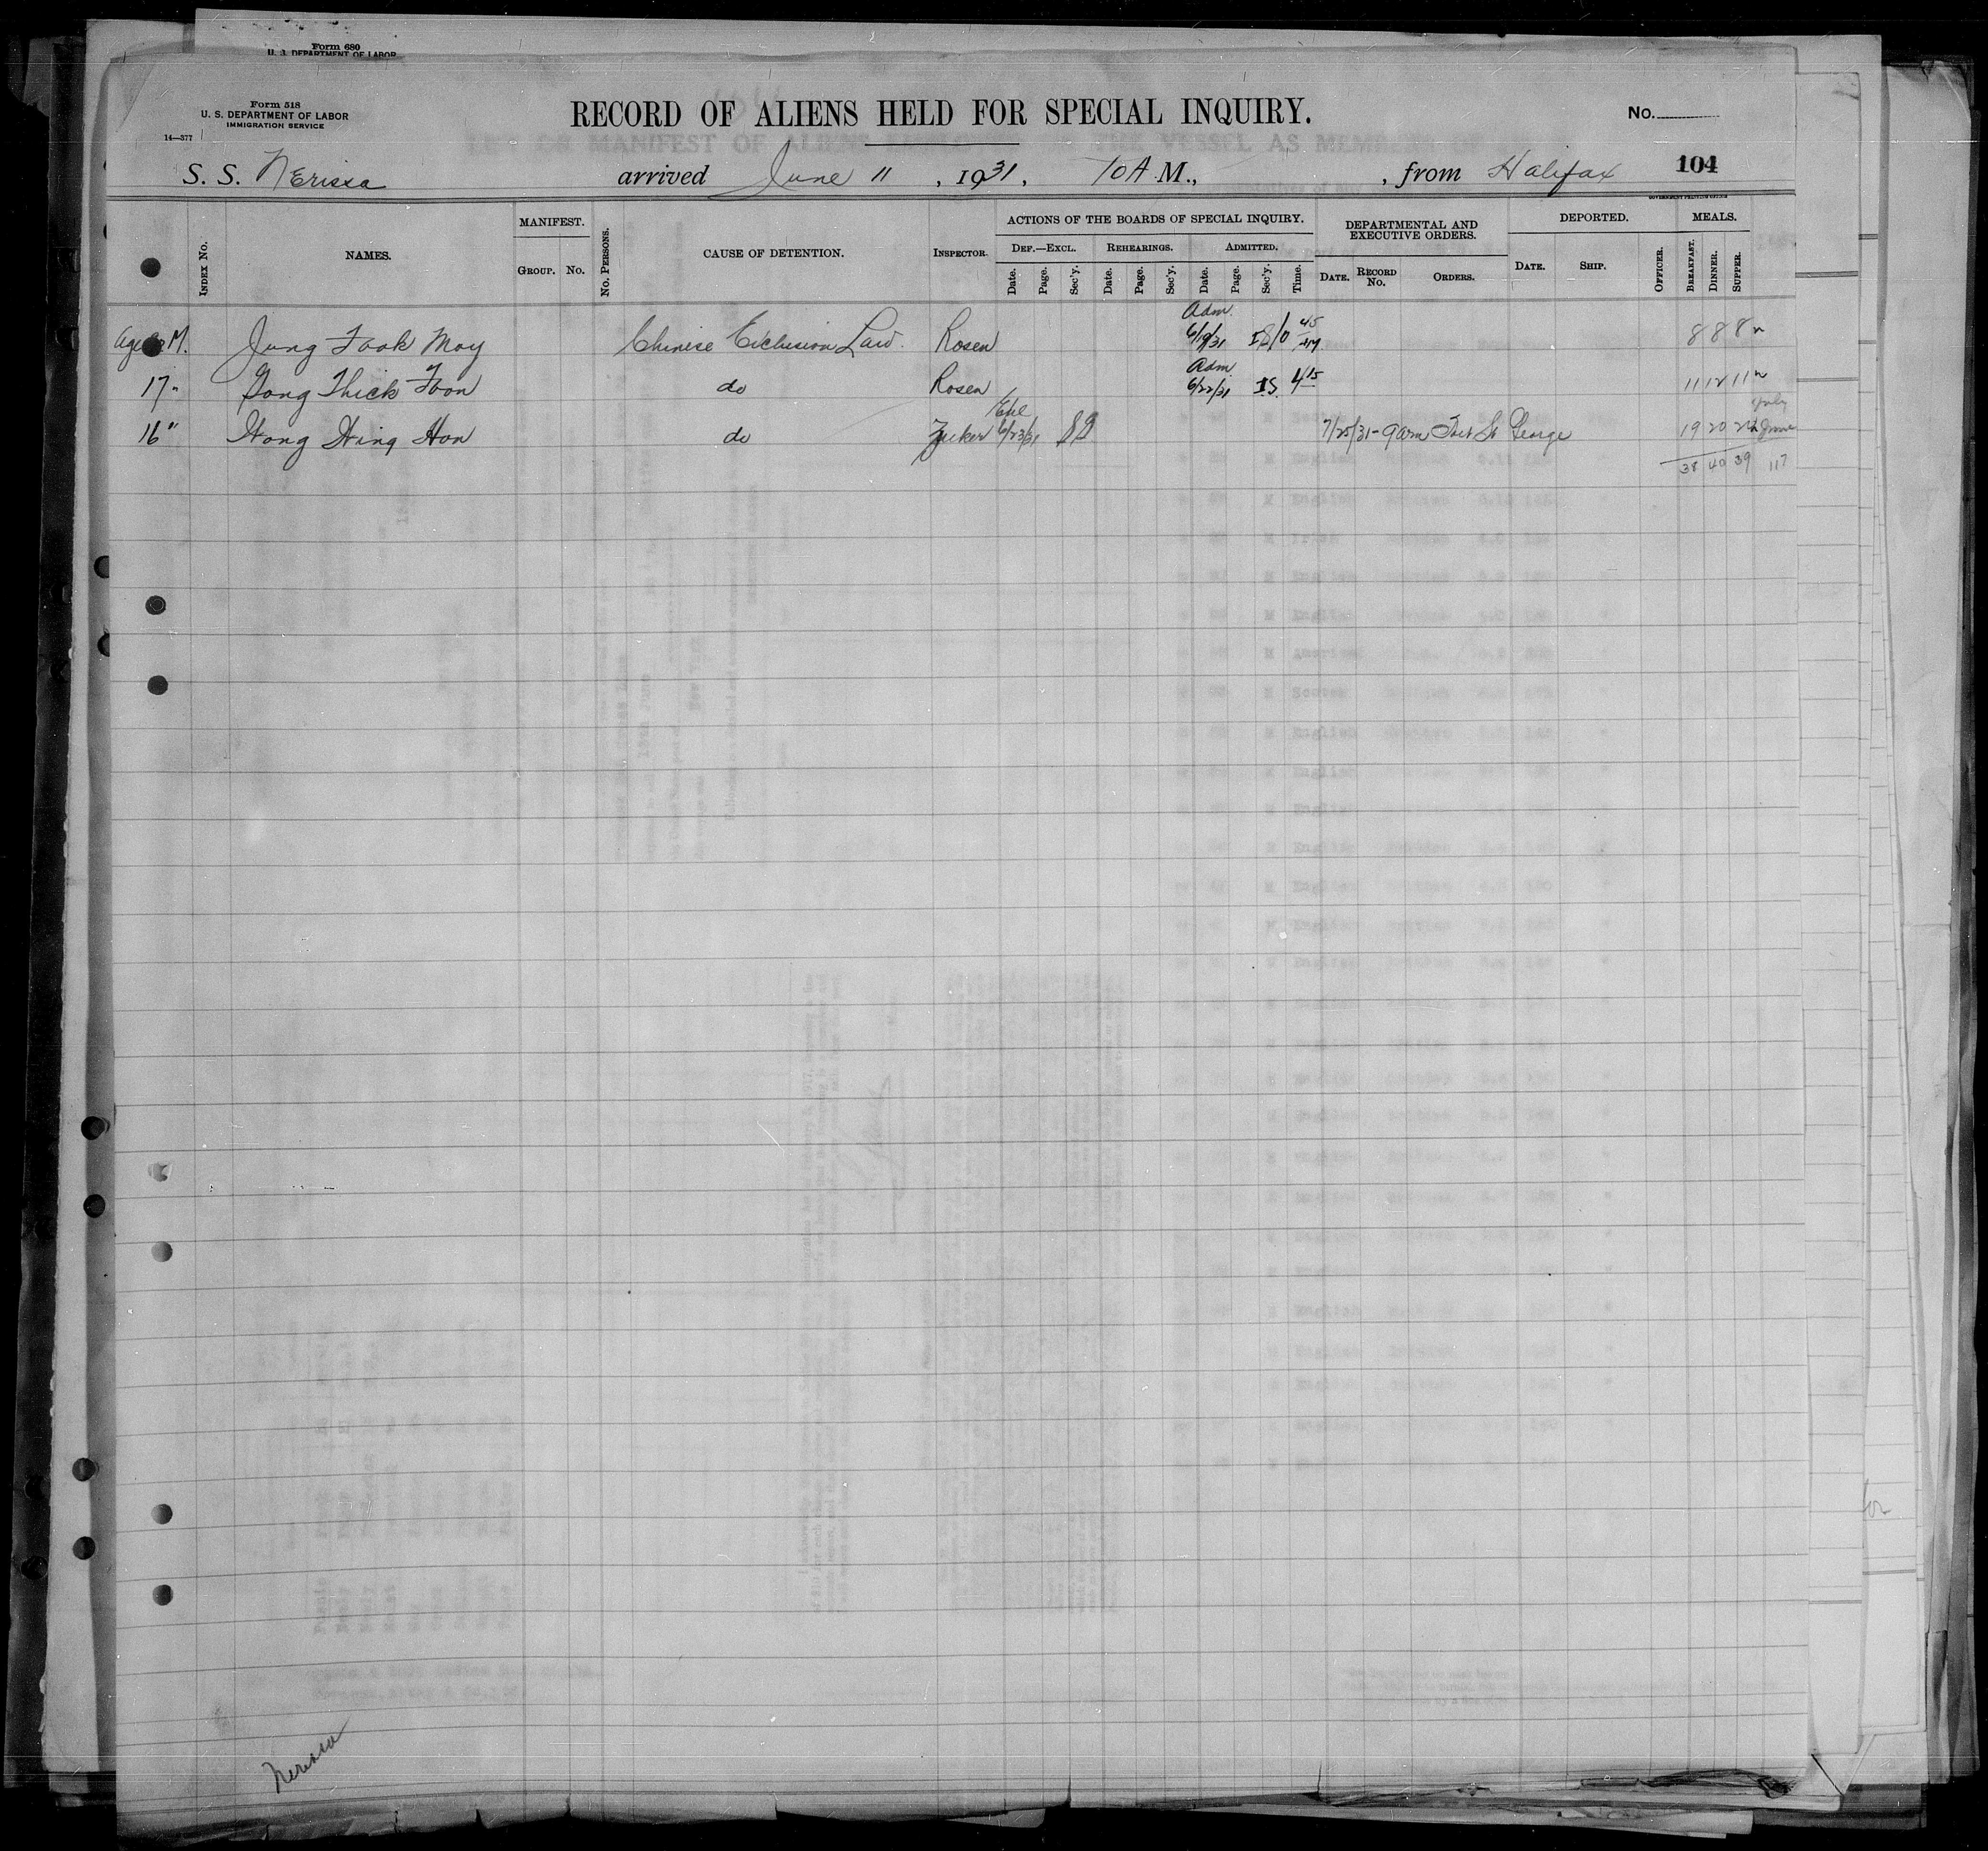 Form 680
U. S. DEPARTMENT OF LABOR
Form 518
U. S. DEPARTMENT OF LABOR
IMMIGRATION SERVICE
14—377
RECORD OF ALIENS HELD FOR SPECIAL INQUIRY.
No.
S. S. Nerissa arrived June 11, 1931, 10 A M., , from Halifax 104
INDEX NO. NAMES. MANIFEST. GROUP. NO. NO. PERSONS. CAUSE OF DETENTION. INSPECTOR. ACTIONS OF THE BOARDS OF SPECIAL INQUIRY. DEPARTMENTAL AND EXECUTIVE ORDERS. DEPORTED. MEALS.
DEF.—EXCL. REHEARINGS. ADMITTED.
Date. Page. Sec'y. Date. Page. Sec'y. Date. Page. Sec'y. Time. DATE. RECORD NO. ORDERS. DATE. SHIP. OFFICER. BREAKFAST. DINNER. SUPPER.
Age M. Jung Fook Moy Chinese Exclusion Law. Rosen Adm. 6/19/31 IS 10 45 AM 8 8 8 "
17 " Gong Thick Foon do Rosen Adm 6/22/31 IS. 4 15 11 12 11 "
16 " Wong Wing Hon do Zucker 6/23/31 7/25/31 - 9 am Fort St George 19 20 July June
38 40 39 117
Nerissa